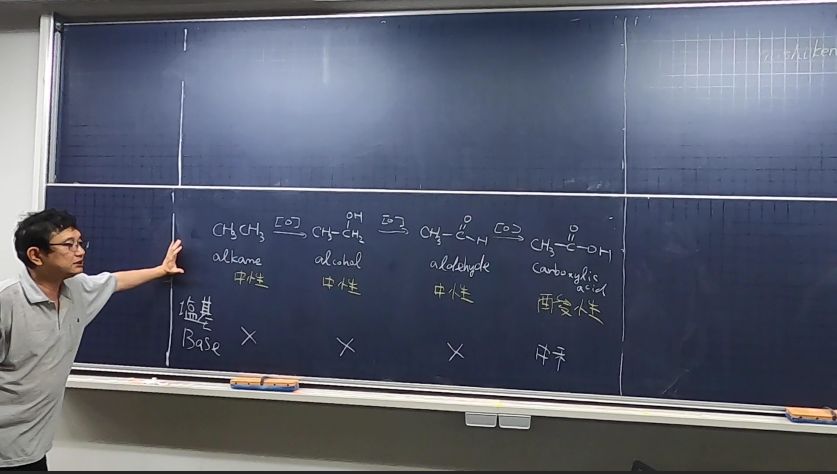 nishiken
OH
O
O
CH3CH3 [O] CH3-CH2 [O] CH3-C-H [O] CH3-C-OH
alkane alcohol aldehyde carboxylic
acid
中性 中性 中性 酸性
塩基
Base × × × 中和